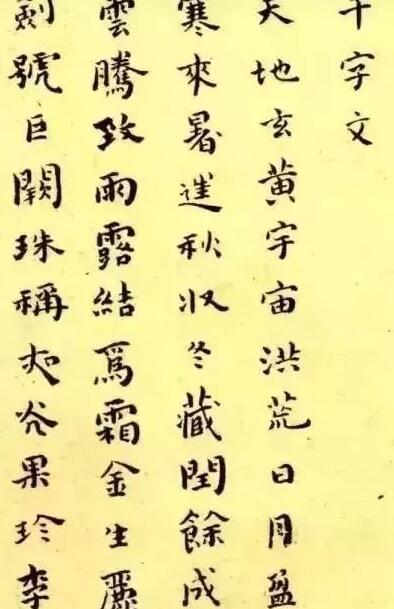 千字文
天地玄黃宇宙洪荒日月盈
寒來暑秋収冬藏閏餘成
雲騰致雨露結爲霜金生麗
劍號巨闕珠稱夜光果珍李